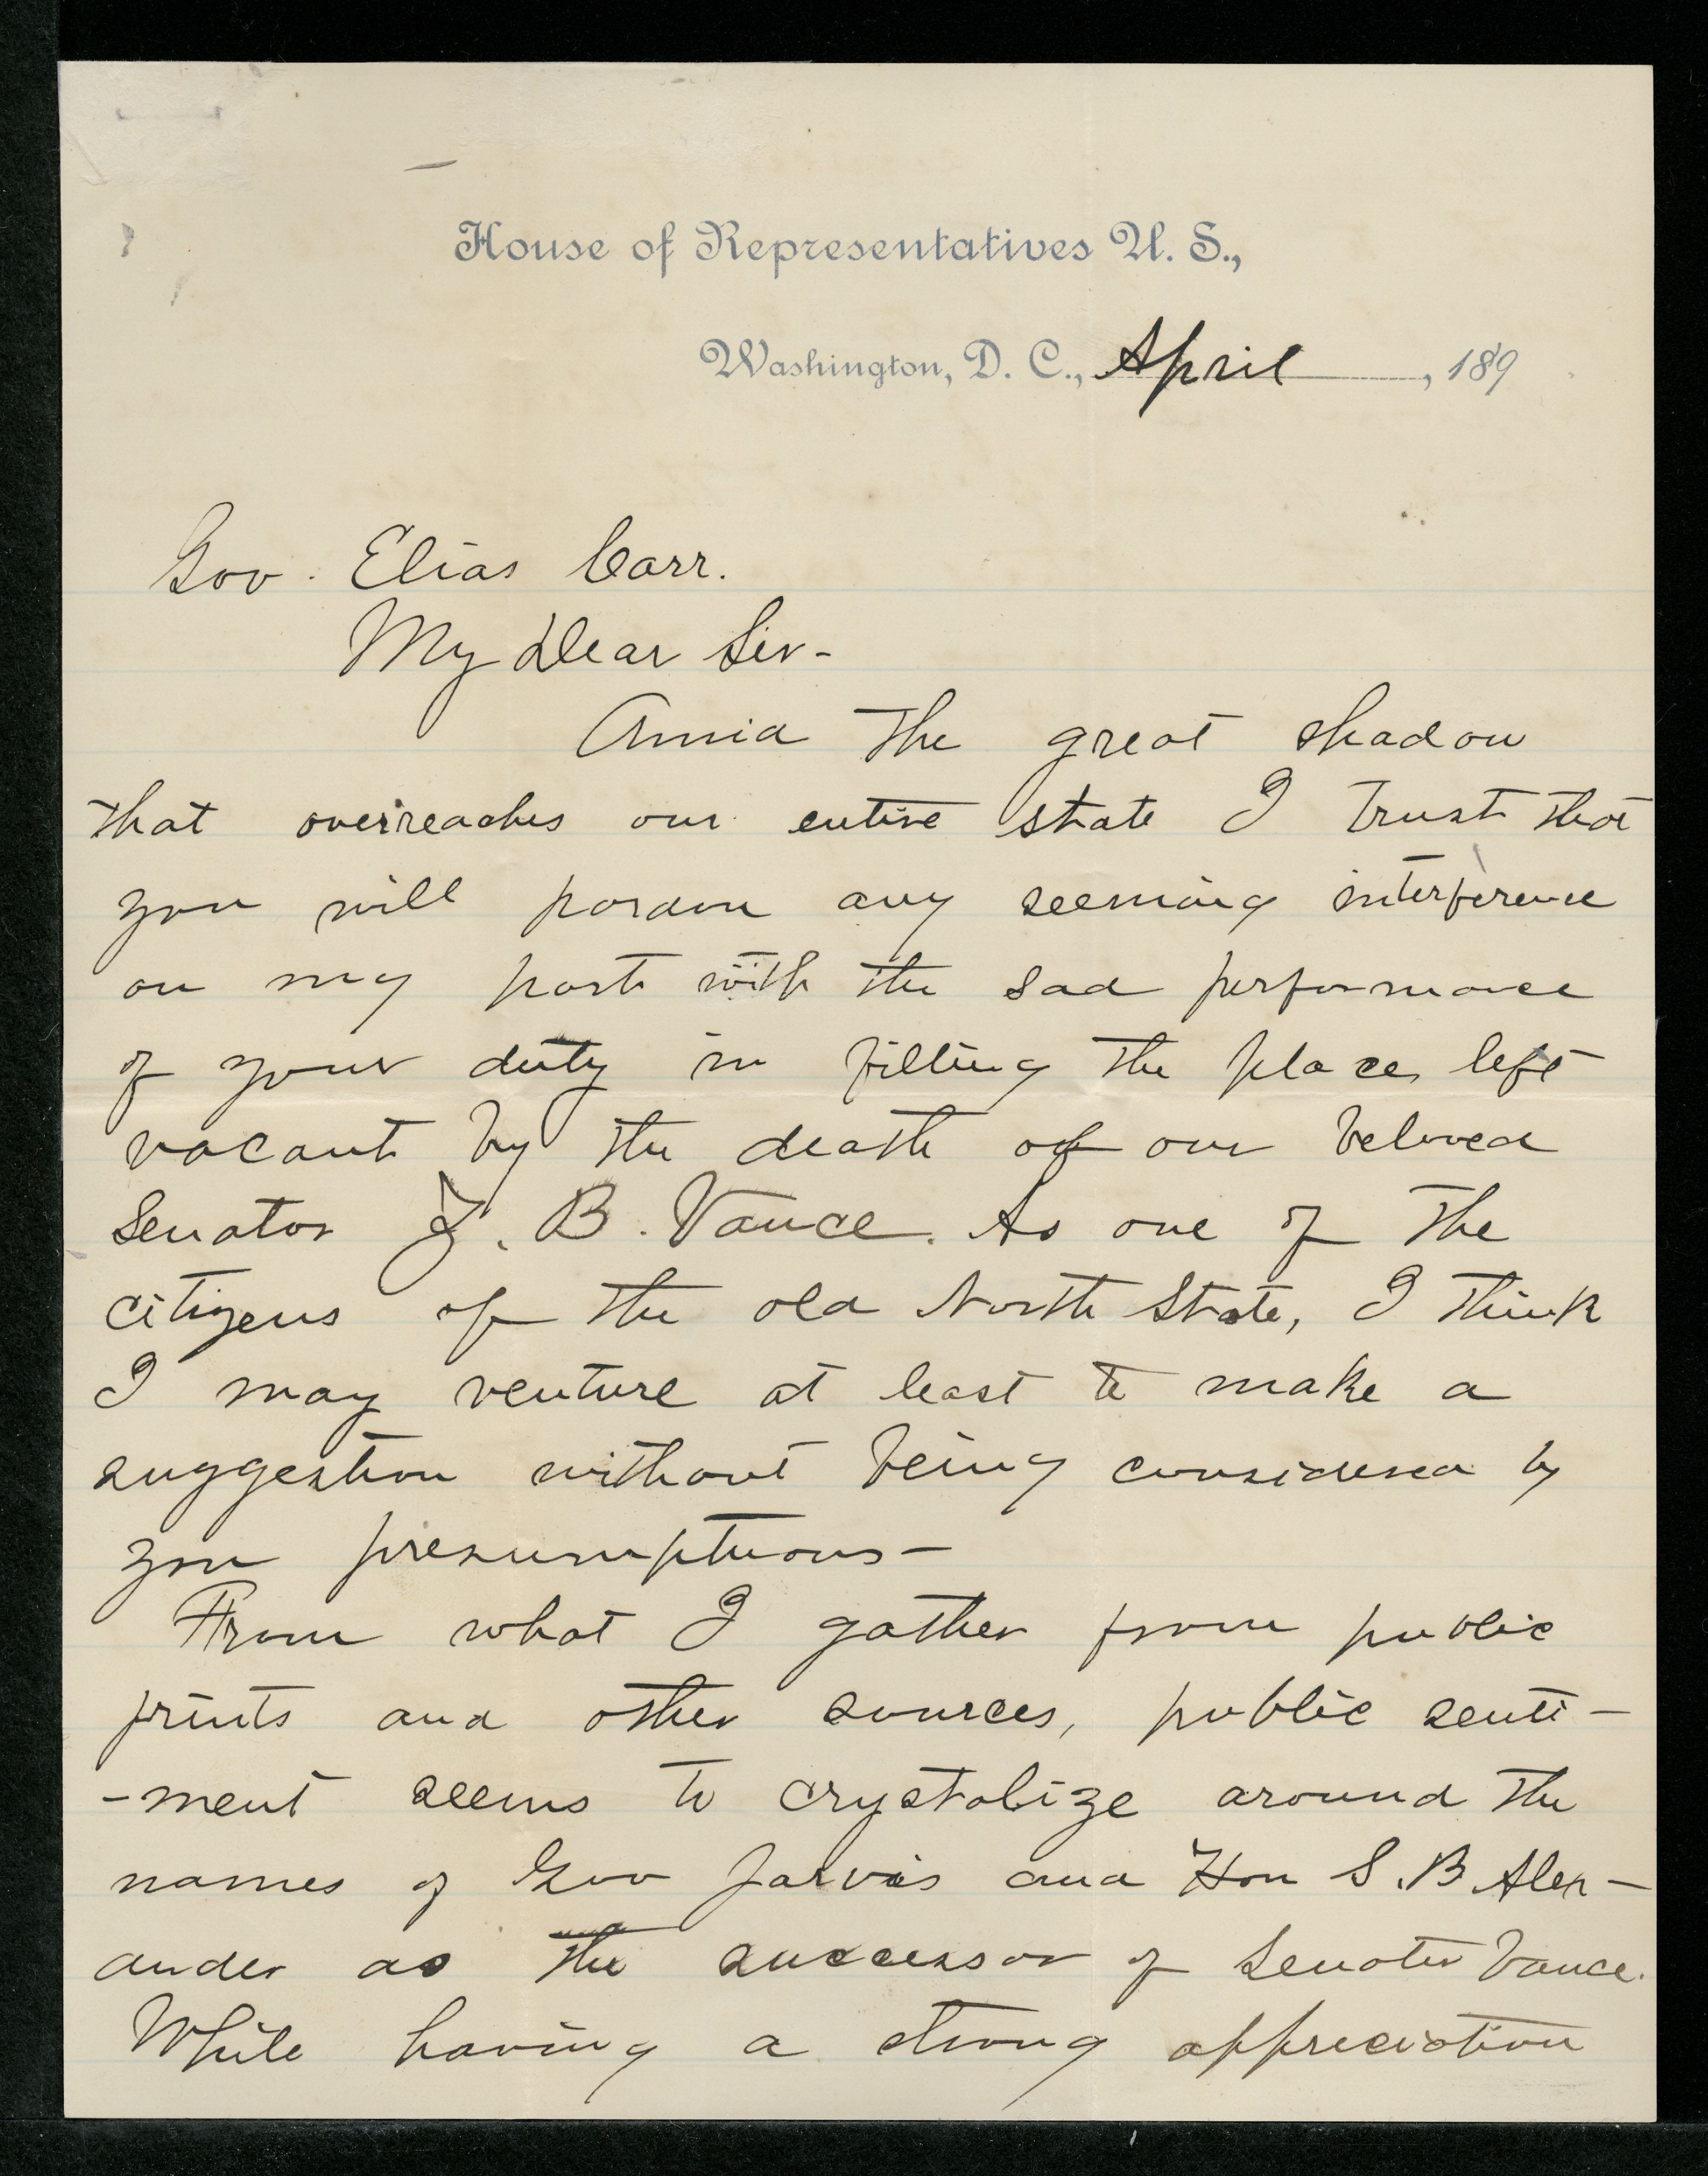 House of Representatives U. S.,
Washington, D. C., April , 189
Gov. Elias Carr.
My Dear Sir-
Amid the great shadow
that overreaches our entire state I trust that
you will pardon any seeming interference
on my part with the sad performance
of your duty in filling the place left
vacant by the death of our beloved
Senator Z. B. Vance. As one of the
citizens of the old North State, I think
I may venture at least to make a
suggestion without being considered by
you presumptuous-
From what I gather from public
prints and other sources, public senti-
-ment seems to crystalize around the
names of Gov Jarvis and Hon S. B Alex-
ander as the successor of Senator Vance.
While having a strong appreciation